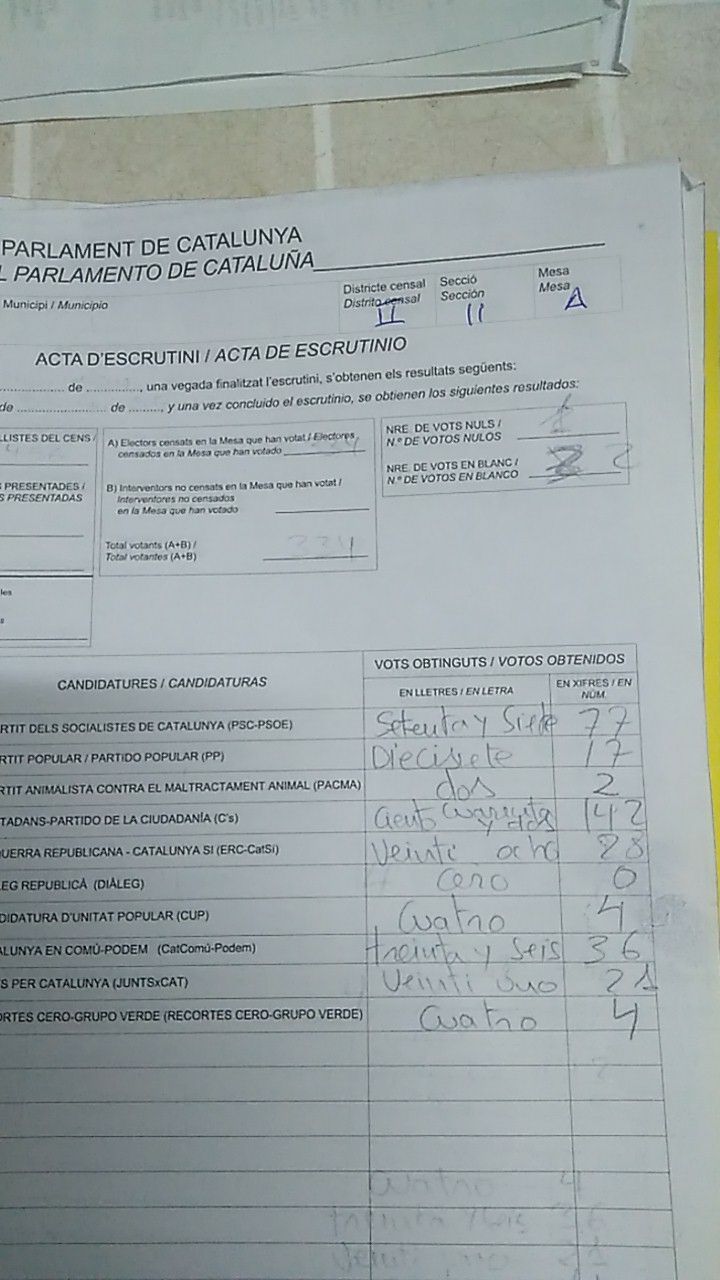 PARLAMENT DE CATALUNYA
L PARLAMENTO DE CATALUÑA
Municipi / Municipio
Districte censal
Distrito censal
II
Secció
Sección
11
Mesa
Mesa
A
ACTA D'ESCRUTINI / ACTA DE ESCRUTINIO
de ............, una vegada finalitzat l'escrutini, s'obtenen els resultats següents:
de ........................ de ........, y una vez concluido el escrutinio, se obtienen los siguientes resultados:
LLISTES DEL CENS /
PRESENTADES /
S PRESENTADAS
les
s
A) Electors censats en la Mesa que han votat / Electores
censados en la Mesa que han votado
B) Interventors no censats en la Mesa que han votat /
Interventores no censados
en la Mesa que han votado
Total votants (A+B) /
Total votantes (A+B)
NRE. DE VOTS NULS /
N.º DE VOTOS NULOS
1
NRE. DE VOTS EN BLANC /
N.º DE VOTOS EN BLANCO
2
CANDIDATURES / CANDIDATURAS
VOTS OBTINGUTS / VOTOS OBTENIDOS
EN LLETRES / EN LETRA
EN XIFRES / EN
NÚM.
RTIT DELS SOCIALISTES DE CATALUNYA (PSC-PSOE) Setenta y Siete 77
RTIT POPULAR / PARTIDO POPULAR (PP) Diecisiete 17
RTIT ANIMALISTA CONTRA EL MALTRACTAMENT ANIMAL (PACMA) dos 2
TADANS-PARTIDO DE LA CIUDADANÍA (C's) ciento cuarenta y dos 142
UERRA REPUBLICANA - CATALUNYA SI (ERC-CatSí) Veinti ocho 28
EG REPUBLICÀ (DIÀLEG) cero 0
DIDATURA D'UNITAT POPULAR (CUP) Cuatro 4
ALUNYA EN COMÚ-PODEM (CatComú-Podem) treinta y seis 36
S PER CATALUNYA (JUNTSxCAT) Veinti uno 21
ORTES CERO-GRUPO VERDE (RECORTES CERO-GRUPO VERDE) Cuatro 4